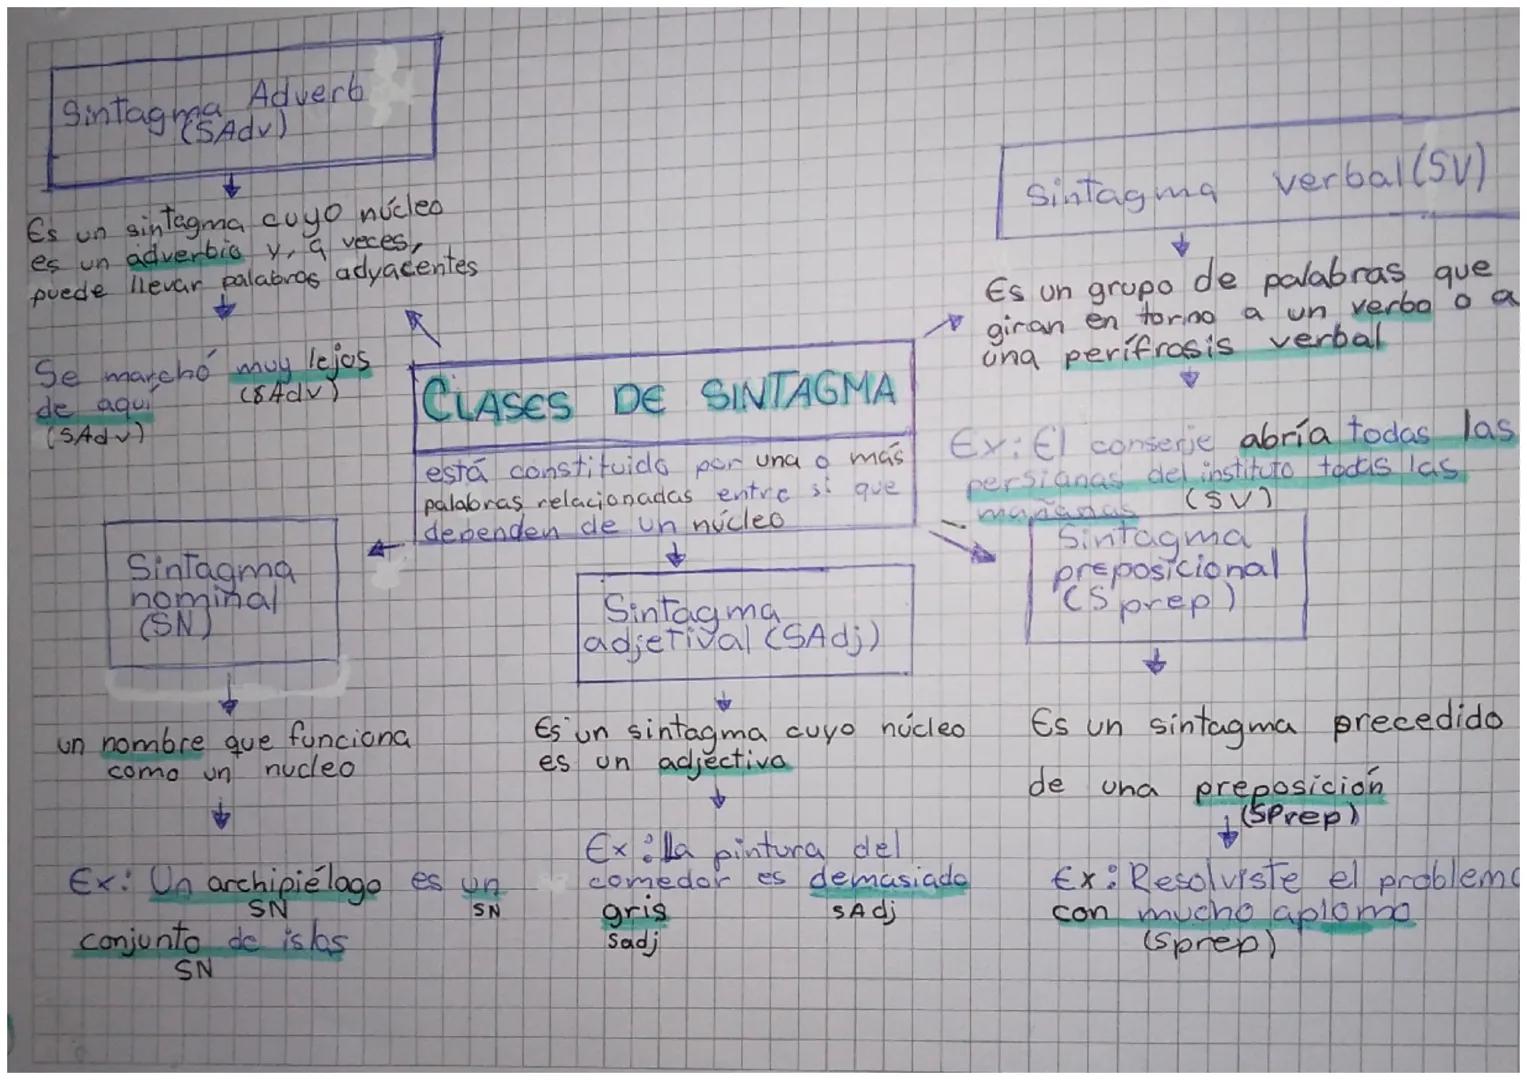 Sintagma Adverb
(SAdv)
Es un sintagma cuyo núcleo
es un adverbio y, a veces,
puede llevar palabras adyacentes
Se marchó muy lejos
(SAdv)
de aquí
(SAdv)
Sintagma verbal (SV)
Es un grupo de palabras que
giran en torno a un verbo o a
una perífrasis verbal
Ex: El conserje abría todas las
persianas del instituto todas las
mañanas (SV)
CLASES DE SINTAGMA
está constituido por una o más
palabras relacionadas entre sí que
dependen de un núcleo
Sintagma
nominal
(SN)
un nombre que funciona
como un nucleo
Ex: Un archipiélago es un
SN SN
conjunto de islas
SN
Sintagma
adjetival (SAdj)
Es un sintagma cuyo núcleo
es un adjectivo
Ex: La pintura del
comedor es demasiado
gris SAdj
Sadj
Sintagma
preposicional
(S prep)
Es un sintagma precedido
de una preposición
(SPrep)
Ex: Resolviste el problema
con mucho aplomo
(Sprep)